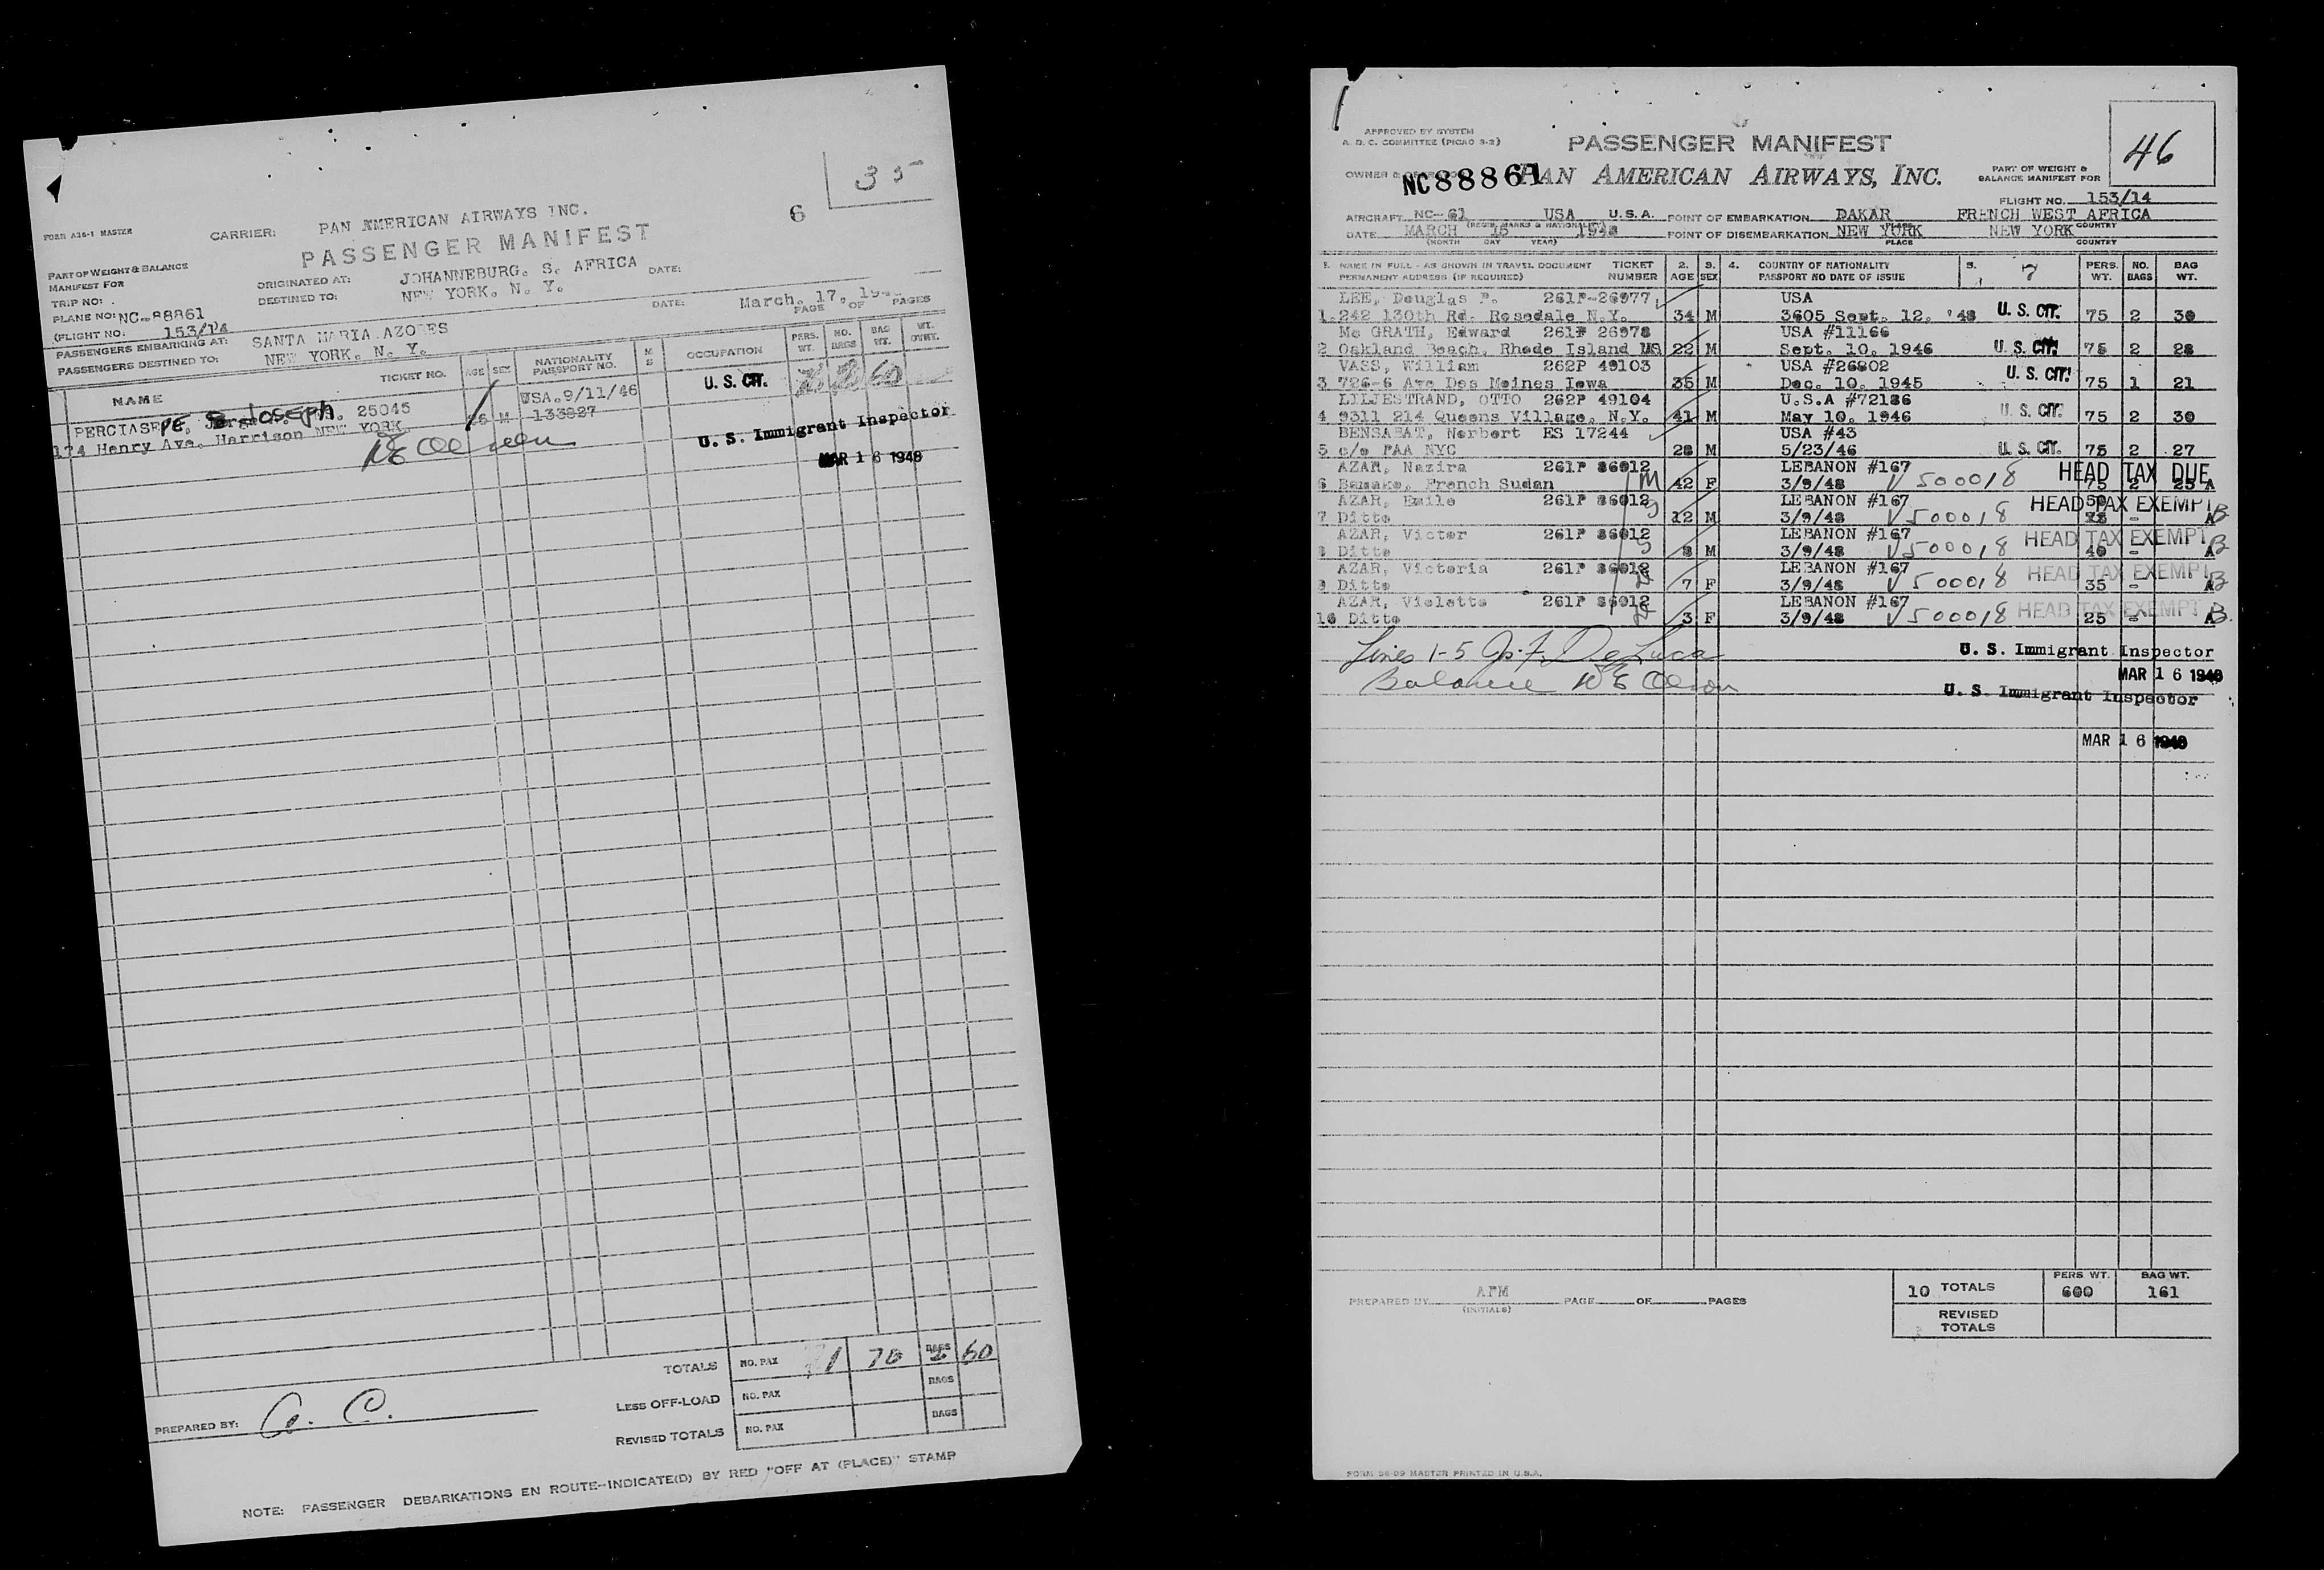 35
6
FORM A26-1 MASTER
CARRIER: PAN AMERICAN AIRWAYS INC.
PASSENGER MANIFEST
PART OF WEIGHT & BALANCE
MANIFEST FOR
ORIGINATED AT: JOHANNEBURG. S. AFRICA DATE:
TRIP NO:
DESTINED TO: NEW YORK. N. Y. DATE: March. 17,
PLANE NO: NC-88861
PAGE OF PAGES
(FLIGHT NO: 153/14
PASSENGERS EMBARKING AT: SANTA MARIA AZORES
PASSENGERS DESTINED TO: NEW YORK. N. Y.
NAME TICKET NO. AGE SEX NATIONALITY PASSPORT NO. M S OCCUPATION PERS. WT. NO. BAGS BAG WT. WT. OVWT.
USA.9/11/46 U. S. CIT. 60
PERCIASEPE, Joseph 25045 M 133827
174 Henry Ave. Harrison NEW YORK
U. S. Immigrant Inspector
MAR 16 1948
TOTALS NO. PAX 1 70 BAGS 2 60
LESS OFF-LOAD NO. PAX BAGS
REVISED TOTALS NO. PAX BAGS
PREPARED BY: C.
NOTE: PASSENGER DEBARKATIONS EN ROUTE--INDICATE(D) BY RED "OFF AT (PLACE)" STAMP
APPROVED BY SYSTEM
A. D. C. COMMITTEE (PICAO 3-2)
PASSENGER MANIFEST
46
OWNER & NC88861 PAN AMERICAN AIRWAYS, INC.
PART OF WEIGHT &
BALANCE MANIFEST FOR
FLIGHT NO. 153/14
AIRCRAFT NC-61 USA U.S.A. POINT OF EMBARKATION DAKAR FRENCH WEST AFRICA
DATE MARCH 15 1948 POINT OF DISEMBARKATION NEW YORK NEW YORK COUNTRY
(MONTH DAY YEAR) PLACE COUNTRY
1. NAME IN FULL - AS SHOWN IN TRAVEL DOCUMENT TICKET 2. 3. 4. COUNTRY OF NATIONALITY 5. 7 PERS. NO. BAG
PERMANENT ADDRESS (IF REQUIRED) NUMBER AGE SEX PASSPORT NO DATE OF ISSUE WT. BAGS WT.
LEE, Douglas P. 261P-26977 USA
1.242 130th Rd. Rosedale N.Y. 34 M 3605 Sept. 12. '48 U. S. CIT. 75 2 30
Mc GRATH, Edward 261P 26978 USA #11166
2 Oakland Beach, Rhode Island 22 M Sept. 10. 1946 U. S. CIT. 75 2 28
VASS, William 262P 49103 USA #26802
3 726-6 Ave Des Moines Iowa 35 M Dec. 10. 1945 U. S. CIT. 75 1 21
LILJESTRAND, OTTO 262P 49104 U.S.A #72186
4 9311 214 Queens Village, N.Y. 41 M May 10. 1946 U. S. CIT. 75 2 30
BENSABAT, Norbert ES 17244 USA #43
5 c/o PAA NYC 28 M 5/23/46 U. S. CIT. 75 2 27
AZAR, Nazira 261P 86012 LEBANON #167 HEAD TAX DUE
6 Bamako, French Sudan M 42 F 3/9/48 V500018 75 2 25 A
AZAR, Emile 261P 86012 LEBANON #167 HEAD TAX EXEMPT
7 Ditto S 12 M 3/9/48 V500018 - A B
AZAR, Victor 261P 86012 LEBANON #167 HEAD TAX EXEMPT
8 Ditto S 8 M 3/9/48 V500018 40 - A B
AZAR, Victoria 261P 86012 LEBANON #167 HEAD TAX EXEMPT
9 Ditto 7 F 3/9/48 V500018 35 - A B
AZAR, Violette 261P 86012 LEBANON #167 HEAD TAX EXEMPT
10 Ditto 3 F 3/9/48 V500018 25 - A B
Lines 1-5 J. F. DeLuca
U. S. Immigrant Inspector
Balance
MAR 16 1948
U. S. Immigrant Inspector
MAR 16 1948
PREPARED BY AFM PAGE OF PAGES
(INITIALS)
PERS WT. BAG WT.
10 TOTALS 600 161
REVISED TOTALS
FORM 26-09 MASTER PRINTED IN U.S.A.